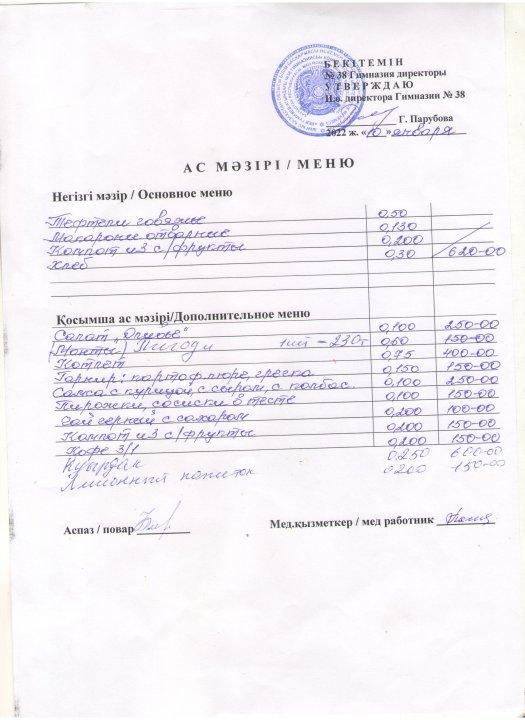 БЕКІТЕМІН
№ 38 Гимназия директоры
УТВЕРЖДАЮ
И.о. директора Гимназии № 38
Г. Парубова
2022 ж. «10» января
АС МӘЗІРІ / МЕНЮ
Негізгі мәзір / Основное меню
Тефтели говяжье 0,50
Макароны отварные 0,130
Компот из с/фрукты 0,200
Хлеб 0,30 620-00
Қосымша ас мәзірі/Дополнительное меню
Салат 0,100 250-00
(Манты) 1шт – 230т 0,60 150-00
Котлет 0,75 400-00
Гарнир: картоф.пюре, гречка 0,150 150-00
Самса с курицой, с сыром, с колбас. 0,100 250-00
Пирожки, сосиски в тесте 0,100 150-00
Чай черный с сахаром 0,200 100-00
Компот из с/фрукты 0,200 150-00
Кофе 3/1 0,200 150-00
Куырдак 0,250 600-00
Лимонный напиток 0,200 150-00
Аспаз / повар
Мед.қызметкер / мед работник